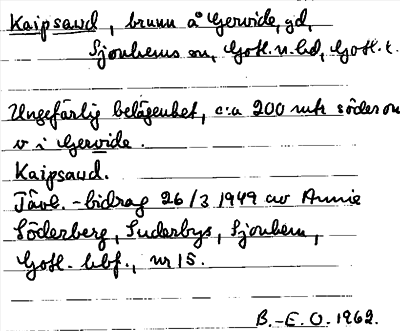 Kaipsaud, brunn å Gervide, gd,
Sjonhems sn, Gotl. n. hd, Gotl. l.
Ungefärlig belägenhet, c:a 200 mtr söder om
v i Gervide.
Kaipsaud.
Tävl.-bidrag 26/3 1949 av Annie
Söderberg, Suderbys, Sjonhem,
Gotl. bbf., nr 15.
B.-E. O. 1962.